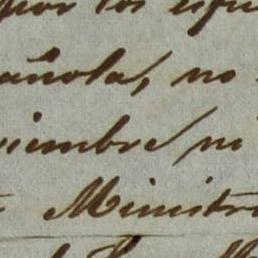 por los espe
añola, no
viembre, ni
Ministr